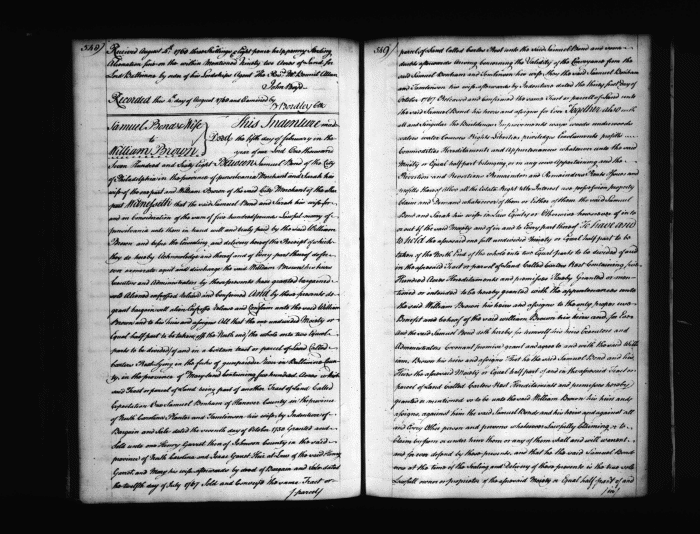 348
Received August 4th 1768 three Shillings & eight pence half penny Sterling
Alienation fine on the within Mentioned Ninety two Acres of Land for
Lord Baltimore by order of his Lordships Agent The Revd Mr Bennet Allen
John Boyd
Recorded this 4th day of August 1768 and Examined by
Bordley Clk
Samuel Bond & Wife
Deed
to
William Brown
This Indenture made
the fifth day of February in the
year of our Lord One thousand
Seven Hundred and Sixty Eight Between Samuel Bond of the City
of Philadelphia in the province of pensylvania Merchant and Sarah his
wife of the one part and William Brown of the said City Merchant of the other
part Witnesseth that the said Samuel Bond and Sarah his wife for
and in Consideration of the sum of five hundred pounds Lawful money of
pensylvania unto them in hand well and truly paid by the said William
Brown and before the Ensealing and delivery hereof the Receipt of which
they do hereby Acknowledge and thereof and of every part thereof do for
ever exonerate aquit and discharge the said William Brown his heirs
Executors and Administrators by these presents have granted bargained
sold Aliened enfeoffed released and Confirmed And by these presents do
grant bargain sell alien Enfeoff release and Confirm unto the said William
Brown and to his heirs and assigns All that the one undivided Moiety or
Equal half part to be taken off the North end of the whole into two Equal
parts to be divided of and in a certain tract or parcel of Land Called
lying in the forks of Gunpowder River in Baltimore Coun
ty in the province of Maryland Containing five hundred Acres which
said Tract or parcel of Land being part of another Tract of Land Called
Expectation One Samuel Bonham of Hanover County in the province
of North Carolina Planter and his wife by Indenture of
Bargain and Sale dated the seventh day of October 1750 Granted and
Sold unto one Henry Garret then of Johnson County in the said
province of North Carolina and Isaac Garret Heir at Law of the said Henry
Garret and Mary his wife afterwards by deed of Bargain and Sale dated
the twelfth day of July 1767 Sold and Conveyed the same Tract or
parcel
349
parcel of Land Called unto the said Samuel Bond and some
doubts afterwards arising concerning the Validity of the Conveyance from the
said Samuel Bonham and his wife they the said Samuel Bonham
and his wife afterwards by Indenture dated the thirty first day of
October 1767 Released and Confirmed the same Tract or parcel of Land unto
the said Samuel Bond his heirs and assigns for Ever Together also with
all and Singular the Buildings Improvements ways woods underwoods
waters water Courses Rights Liberties privileges Enrolments profits
Commodities Hereditaments and Appurtenances whatsoever unto the said
Moiety or Equal half part belonging or in any wise Appertaining and the
Reversion and Reversions Remainder and Remainders Rents Issues and
profits thereof Also all the Estate Right title Interest use possession property
Claim and Demand whatsoever of them or Either of them the said Samuel
Bond and Sarah his wife in Law Equity or Otherwise howsoever of in to
or out of the said Moiety and of in and to Every part thereof To have and
to hold the aforesaid one full undivided Moiety or Equal half part to be
taken of the North End of the whole into two Equal parts to be divided of and
in the aforesaid Tract or parcel of Land Called Containing five
Hundred Acres Hereditaments and premises hereby Granted or men
tioned or intended to be hereby granted with the appurtenances unto
the said William Brown his heirs and assigns to the only proper use
Benefit and behoof of the said William Brown his heirs and for Ever
and the said Samuel Bond doth hereby for himself his heirs Executors and
Administrators Covenant promise grant and agree to and with the said Willi
am Brown his heirs and assigns That he the said Samuel Bond and his
Heirs the aforesaid Moiety or Equal half part of and in the aforesaid Tract or
parcel of Land Called Hereditaments and premises hereby
granted or mentioned so to be unto the said William Brown his heirs and
assigns against him the said Samuel Bond and his heirs and against all
and Every Other person and persons whatsoever Lawfully Claiming or to
Claim by from or under him them or any of them Shall and will warrant
and for ever defend by these presents, and that he the said Samuel Bond
now at the time of the Sealing and Delivery of these presents is the true sole
Lawfull owner or proprietor of the aforesaid Moiety or Equal half part of and
in